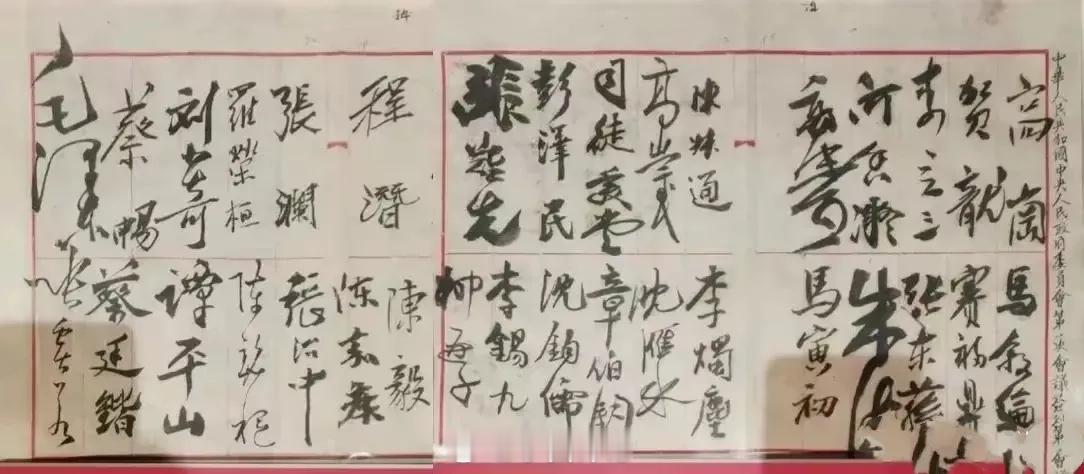 中華人民共和國中央人民政府委員會第一次會議
高崗
馬敘倫
賀龍
賽福鼎
李立三
張东蓀
何香凝
朱德
馬寅初
陳叔通
李燭塵
高崇民
沈雁冰
司徒美堂
章伯鈞
彭澤民
沈鈞儒
張難先
李錫九
柳亞子
程潛
陳毅
陈嘉庚
張瀾
張治中
羅榮桓
刘少奇
譚平山
蔡暢
蔡廷鍇
毛澤东